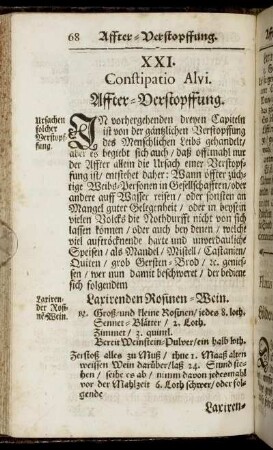 68 Affter-Verstopffung.
XXI.
Constipatio Alvi.
Affter-Verstopffung.
Ursachen solcher Verstopffung.
IN vorhergehenden dreyen Capiteln
ist von der gäntzlichen Verstopffung
des Menschlichen Leibs gehandelt,
aber es begiebt sich auch / daß offtmahl nur
der Affter allein die Ursach einer Verstopffung
ist / entstehet daher: Wann öffter züchtige
Weibs-Personen in Gesellschafften / oder
andere auff Wasser reisen / oder sonsten an
Mangel guter Gelegenheit / oder in beysein
vielen Volcks die Nothdurfft nicht von sich
lassen können / oder auch bey denen / welche
viel auftröcknende harte und unverdauliche
Speisen / als Mandel / Mistell / Castanien /
Quiten / grob Gersten-Brod / &c. geniessen
/ wer nun damit beschweret / der bediene
sich folgendem
Laxirender Rosinen-Wein.
Laxirenden Rosinen-Wein.
℞. Groß und kleine Rosinen / jedes 8. loth.
Sennet-Blätter / 2. Loth.
Zimmet / 2. quintl.
Bereit Weinstein-Pulver / ein halb loth.
Zerstoß alles zu Muß / thue 1. Maaß alten
weissen Wein darüber / laß 24. Stund stehen
/ seihe es ab / nimm davon jedesmahl
vor der Mahlzeit 6. Loth schwer / oder folgende
Laxiren-